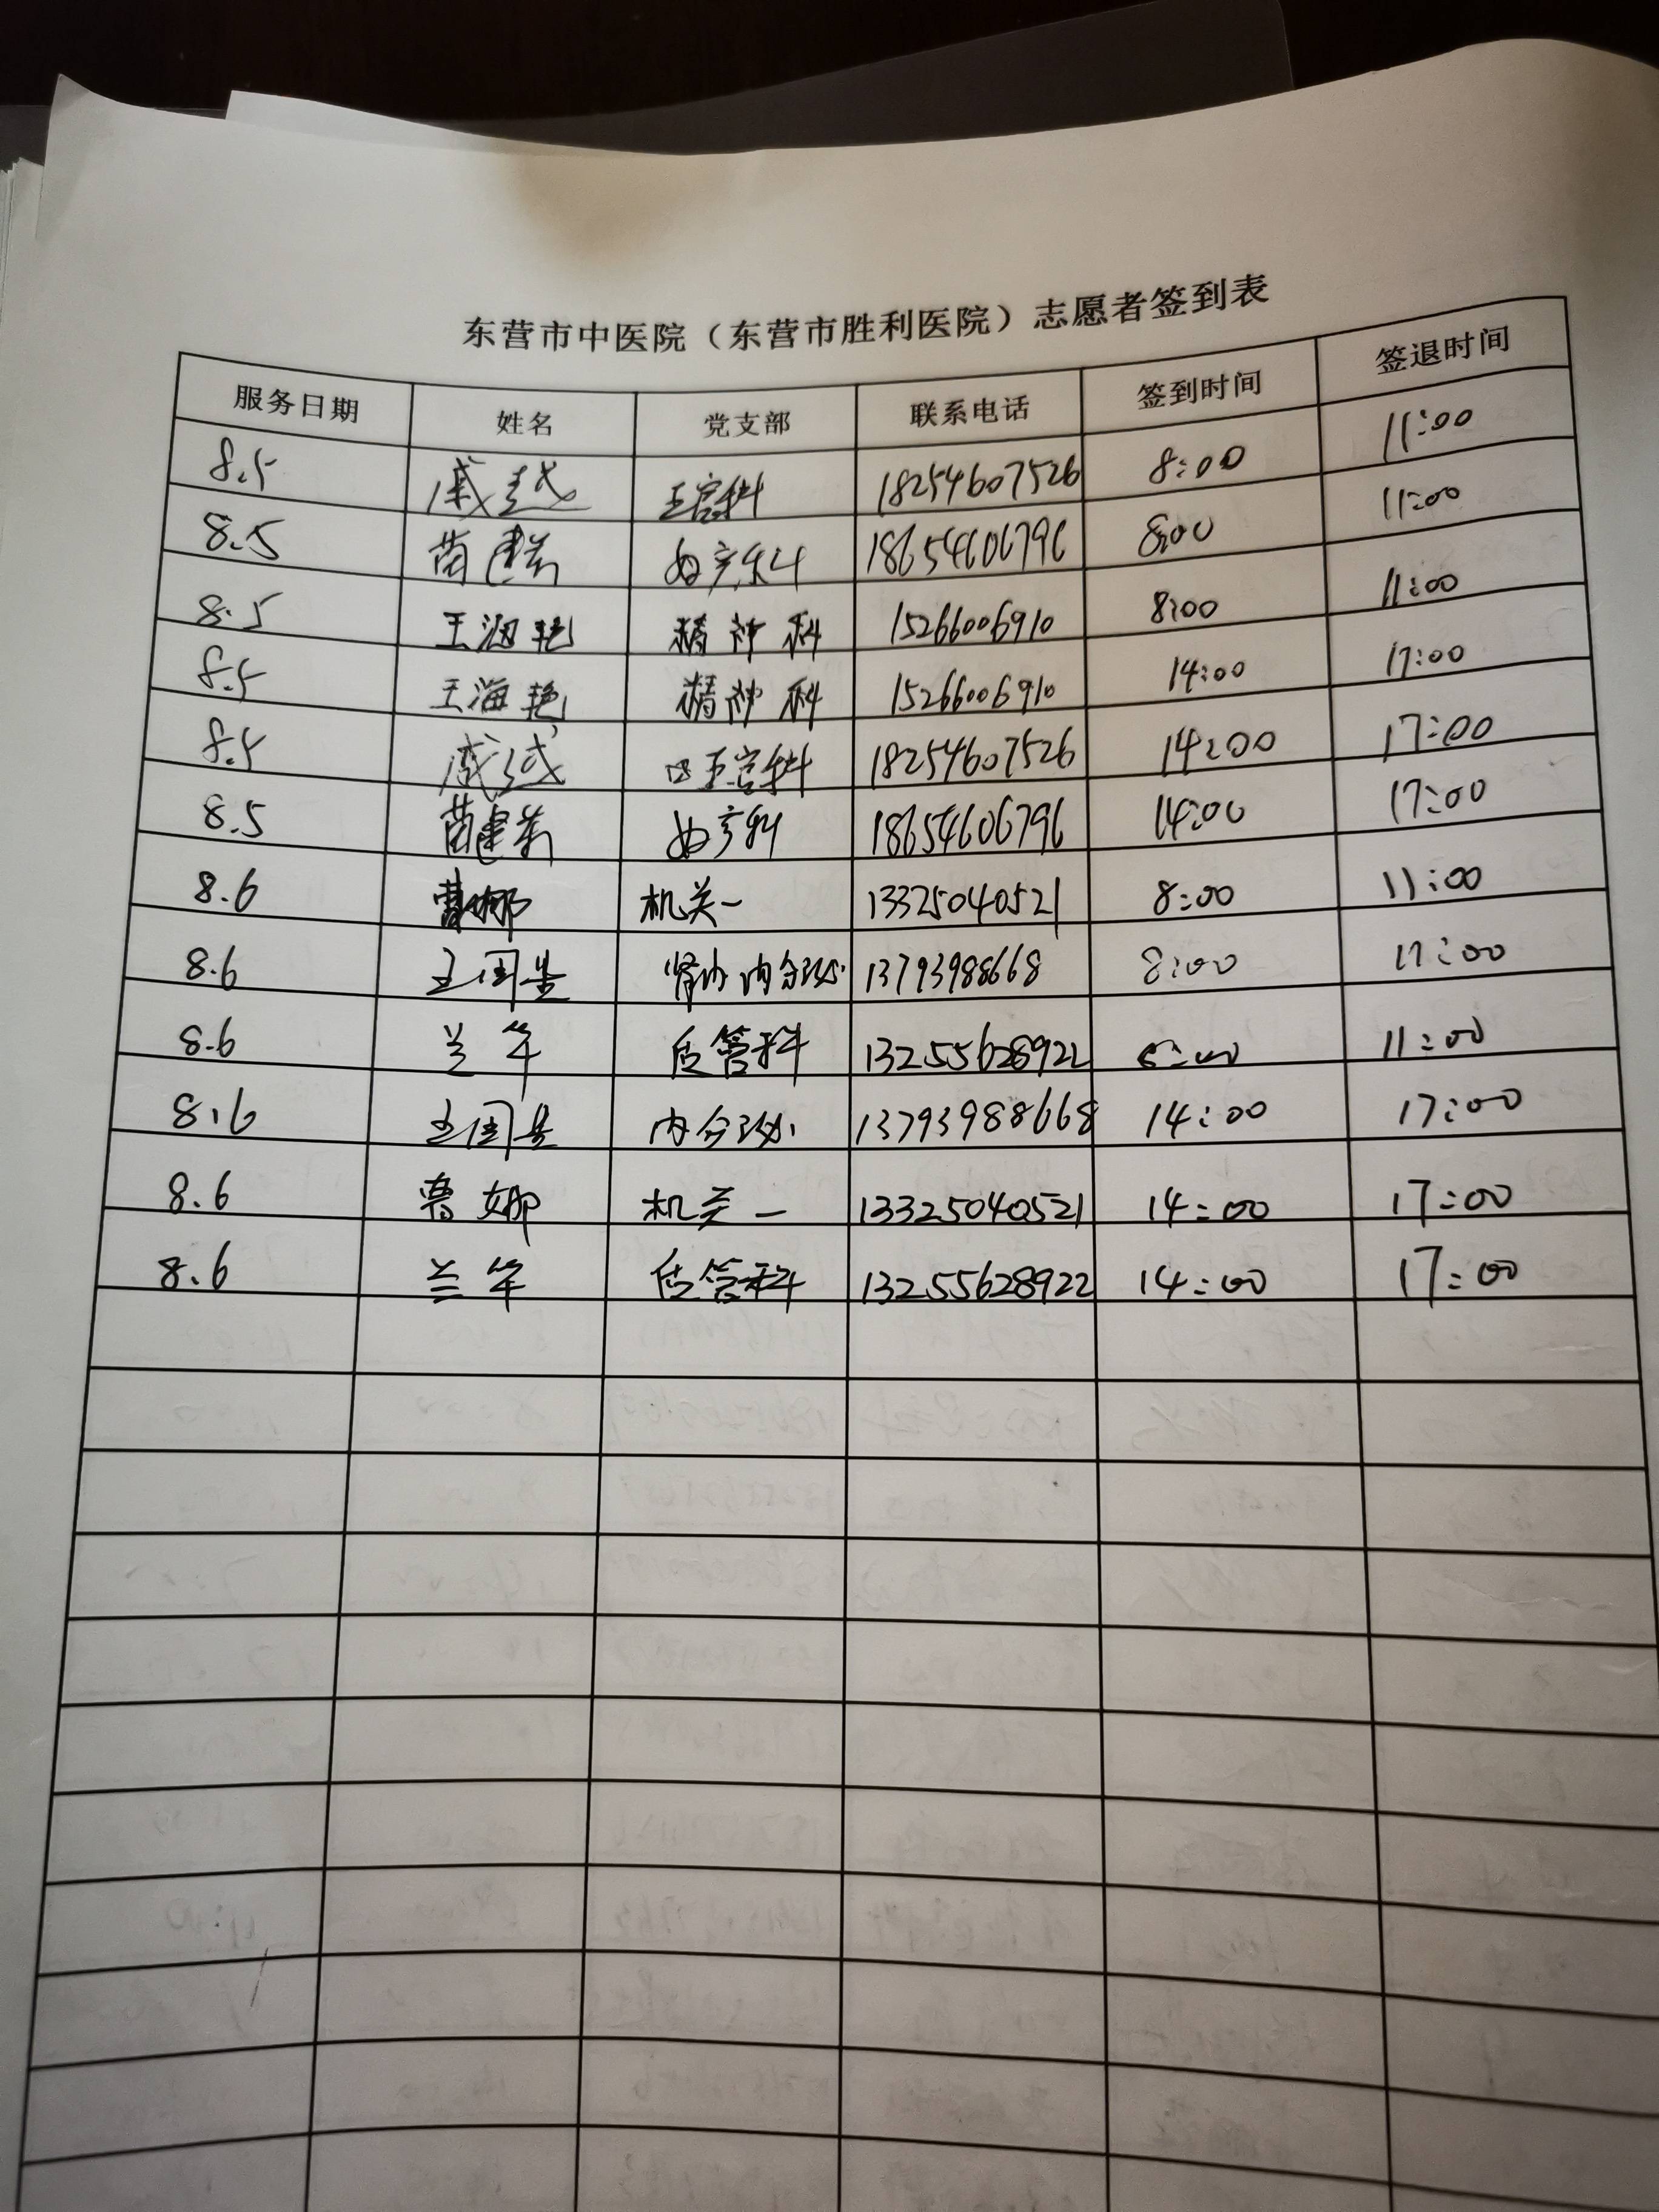 东营市中医院（东营市胜利医院）志愿者签到表
服务日期 姓名 党支部 联系电话 签到时间 签退时间
8.5 戚越 五官科 18254607526 8:00 11:00
8.5 苗建 妇产科 18654606796 8:00 11:00
8.5 王海艳 精神科 15266006910 8:00 11:00
8.5 王海艳 精神科 15266006910 14:00 17:00
8.5 戚越 五官科 18254607526 14:00 17:00
8.5 苗建 妇产科 18654606796 14:00 17:00
8.6 曹娜 机关一 13325040521 8:00 11:00
8.6 王国 肾内内分泌 13793988668 8:00 11:00
8.6 兰 质管科 13255628922 8:00 11:00
8.6 王国 内分泌 13793988668 14:00 17:00
8.6 曹娜 机关一 13325040521 14:00 17:00
8.6 兰 质管科 13255628922 14:00 17:00